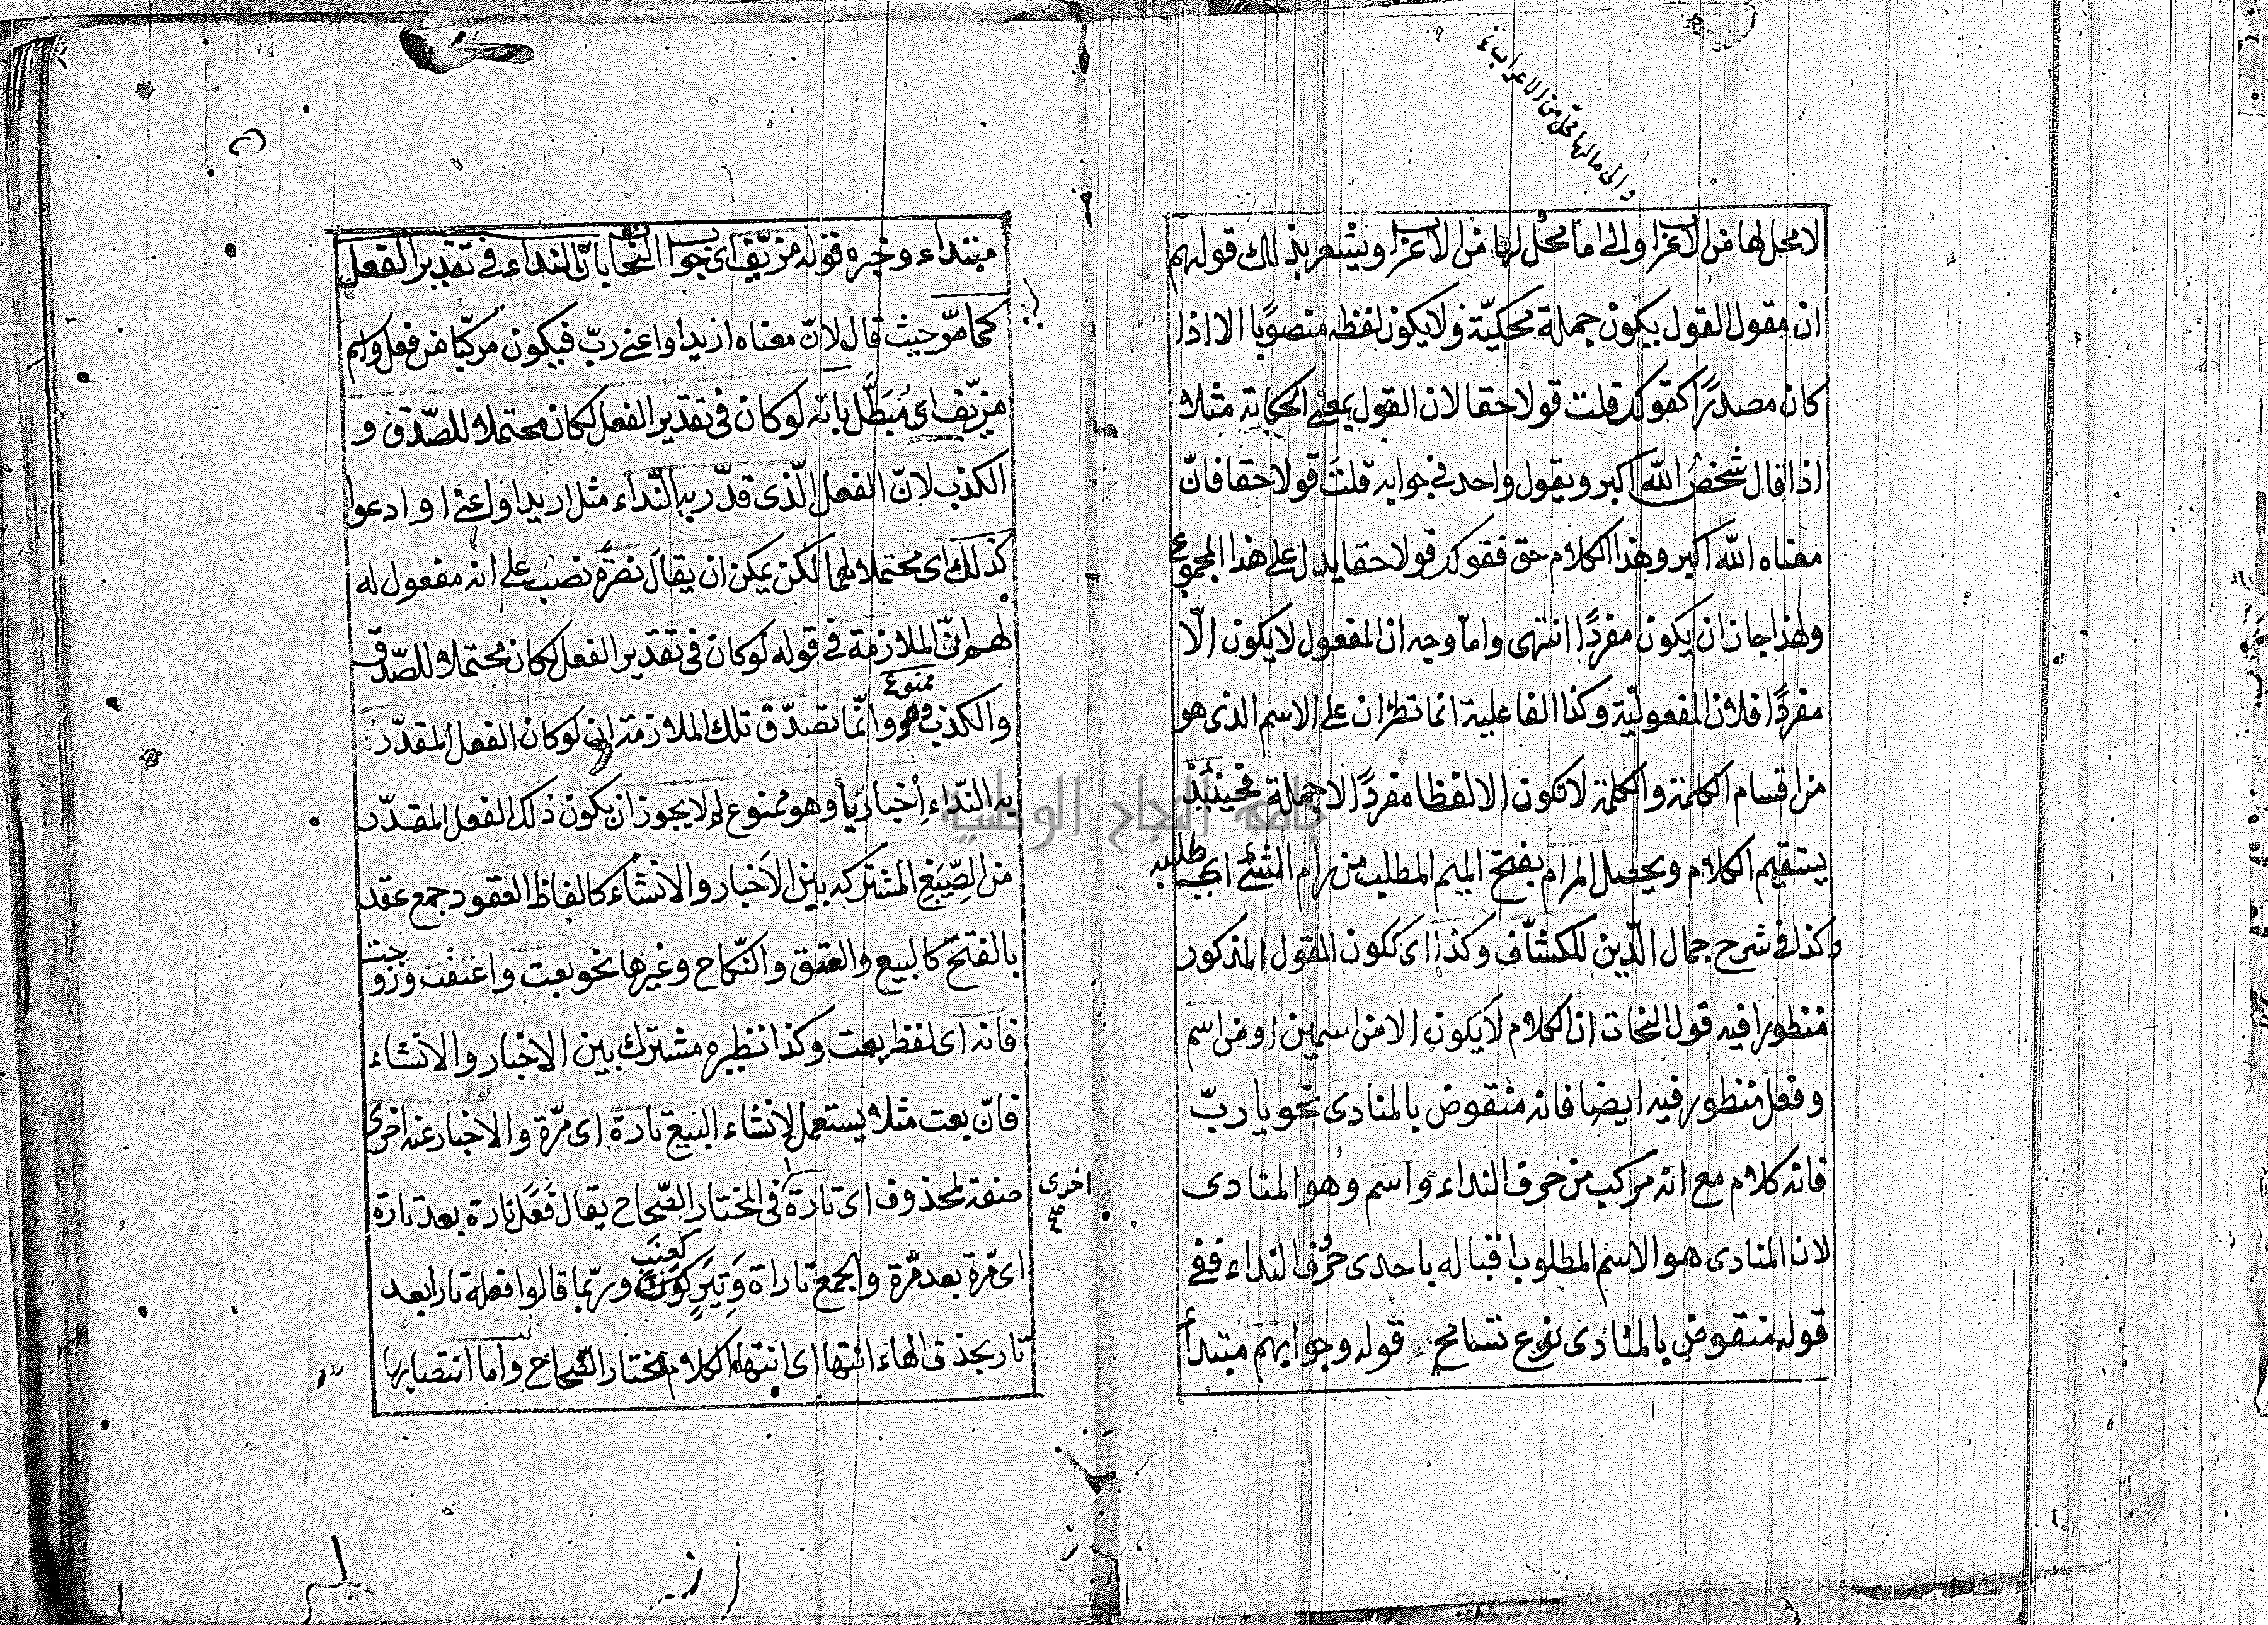 والى مالها محل من الاعراب
لا محل لها من الاعراب والى ما محل لها من الاعراب ويشعر بذلك قولهم
ان مقول القول يكون جملة محكيّة ولا يكون لفظه منصوبًا الا اذا
كان مصدرًا كقوكد قلت قولا حقا لان القول بمعنى الحكاية مثلا
اذا قال شخص الله اكبر ويقول واحد في جوابه قلت قولا حقا فانّ
معناه الله اكبر وهذا الكلام حق فقوكد قولا حقا يدل على هذا المجموع
ولهذا جاز ان يكون مفردًا انتهى وامّا وجه ان المفعول لا يكون الّا
مفردًا فلان المفعوليّة وكذا الفاعلية انما تطرٱن على الاسم الذي هو
من اقسام الكلمة والكلمة لا تكون الا لفظا مفردًا لا جملة فحينئذ
يستقيم الكلام ويحصل المرام بفتح الميم المطلب من رام الشئ اى طلبه
وكذا في شرح جمال الدّين للكشّاف وكذا اى ككون المقول المذكور
منظورا فيه قول النحات ان الكلام لا يكون الا من اسمين او من اسم
وفعل منظور فيه ايضا فانه منقوض بالمنادى نحو يا ربّ
فانه كلام مع انه مركب من حرف النداء واسم وهو المنادى
لان المنادى هو الاسم المطلوب اقباله باحدى حرف النداء ففى
قوله منقوض بالمنادى نوع تسامح قوله وجوابهم مبتدأ
مبتداء وخبره قوله مزيّف اى جواب النحاة بانّ النداء في تقدير الفعل
كما مرّ حيث قال لانّ معناه ازيد او اعنى ربّ فيكون مركّبا من فعل واسم
مزيّف اى مُبَطَّل بانه لو كان فى تقدير الفعل لكان محتملا للصّدق و
الكذب لانّ الفعل الّذى قدّر به النّداء مثل اريد او اعنى او ادعوا
كذلك اى محتملا لهما لكن يمكن ان يقال نصرَّة نصب على انه مفعول له
لهم انّ الملازمة فى قوله لو كان فى تقدير الفعل لكان محتملا للصّدق
والكذب ممنوع وهو وانّما تصدّق تلك الملازمة ان لو كان الفعل المقدّر
به النّداء اِخباريّا وهو ممنوع اذ لا يجوز ان يكون ذلك الفعل المقدّر
من الصِّيَغ المشتركه بين الاَخبار والانشاء كالفاظ العقود جمع عقد
بالفتح كالبيع والعتق والنّكاح وغيرها نحو بعت واعتقت وزوجت
فانه اى لفظ بعت وكذا نظيره مشترك بين الاخبار والانشاء
فانّ بعت مثلا يستعمل لانشاء البيع تارة اى مرّة والاخبار عنه اخرى
اخرى صفة لمحذوف اى تارة فى المختار الصّحاح يقال فَعَلَ تارة بعد تارة
اى مرّة بعد مرّة والجمع تاراة وَتِيَرٍ كعِنَبٍ وربّما قالوا فعله تارا بعد
تار بحذف الهاء انتها اى انتهاء كلام مختار الصّحاح واما انتصابها